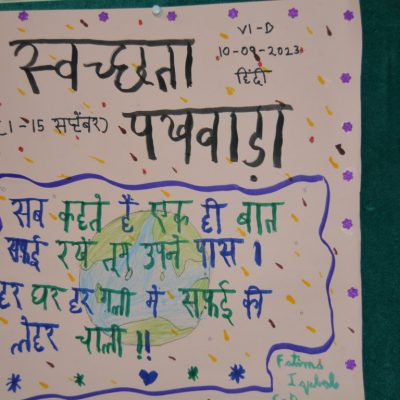 VI-D
स्वच्छता
10-09-2023
हिंदी
(1-15 सप्टेंबर)
पखवाड़ा
सब कहते हैं एक ही बात
सफाई रखे तुम अपने पास ।
हर घर हर गली में सफ़ई की
लेहर चाली !!
Fatima
Iqubal